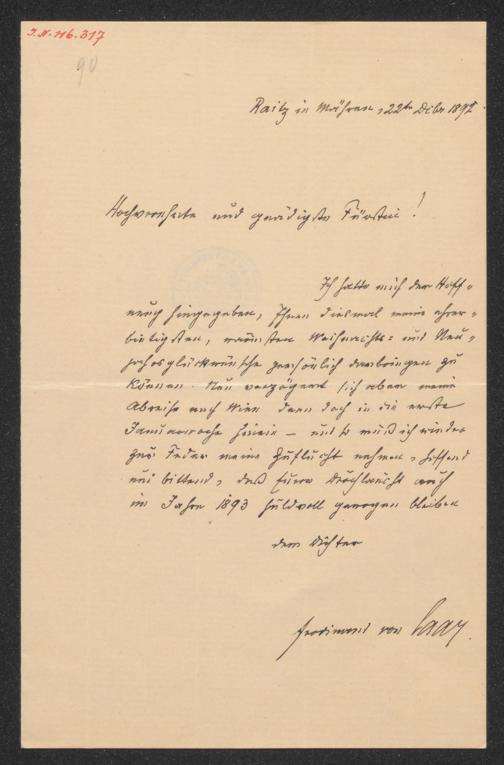 J.N. 116.317
90
Raitz in Mähren, 22te Dzbr 1892
Hochverehrte und gnädigste Fürstin!
Ich hatte mich der Hoff-
nung hingegeben, Ihnen diesmal meine ehrer-
bietigsten, wärmsten Weihnachts- und Neu-
jahrsglückwünsche persönlich darbringen zu
können. Nun verzögert sich aber meine
Abreise nach Wien denn doch in die erste
Januarwoche hinein – und so muß ich wieder
zur Feder meine Zuflucht nehmen, hoffend
und bittend, daß Euere Durchlaucht auch
im Jahre 1893 huldvoll gewogen bleiben
dem Dichter
Ferdinand von Saar.